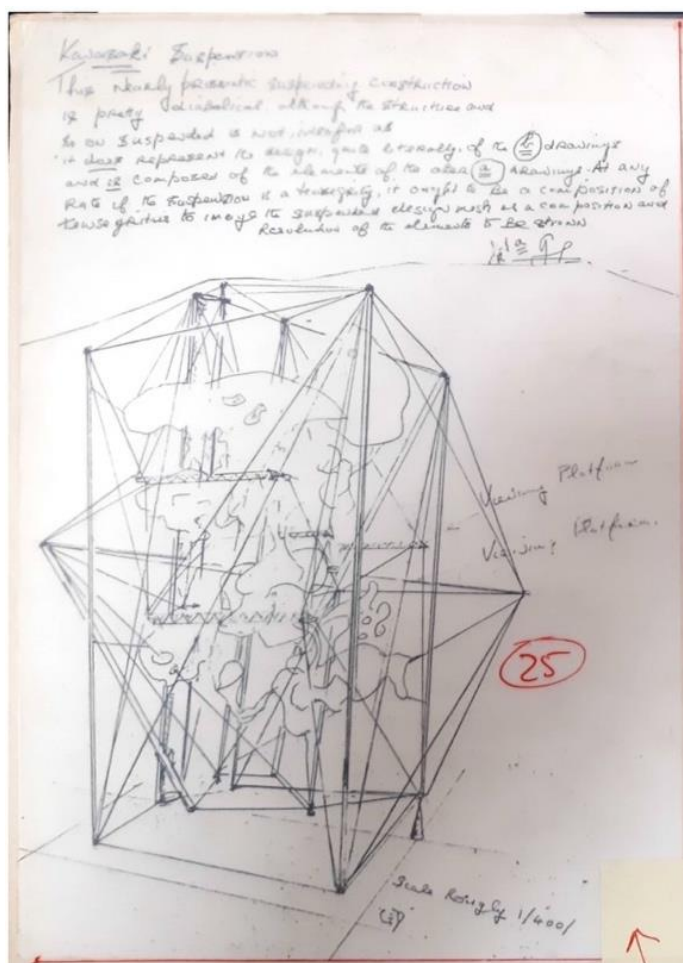 Kawasaki Suspension
This nearly prismatic suspending construction
is pretty diabolical although the structure and
so on suspended is not, insofar as
it does represent the design, quite literally, of the (b) drawings
and is composed of the elements of the area (a) drawings. At any
Rate if the suspension is a tensegrity, it ought to be a composition of
tensegrities to image the suspended design mesh as a composition and
Resolution of the elements to be shown
Viewing Platform
Viewing Platform.
25
Scale Roughly 1/400